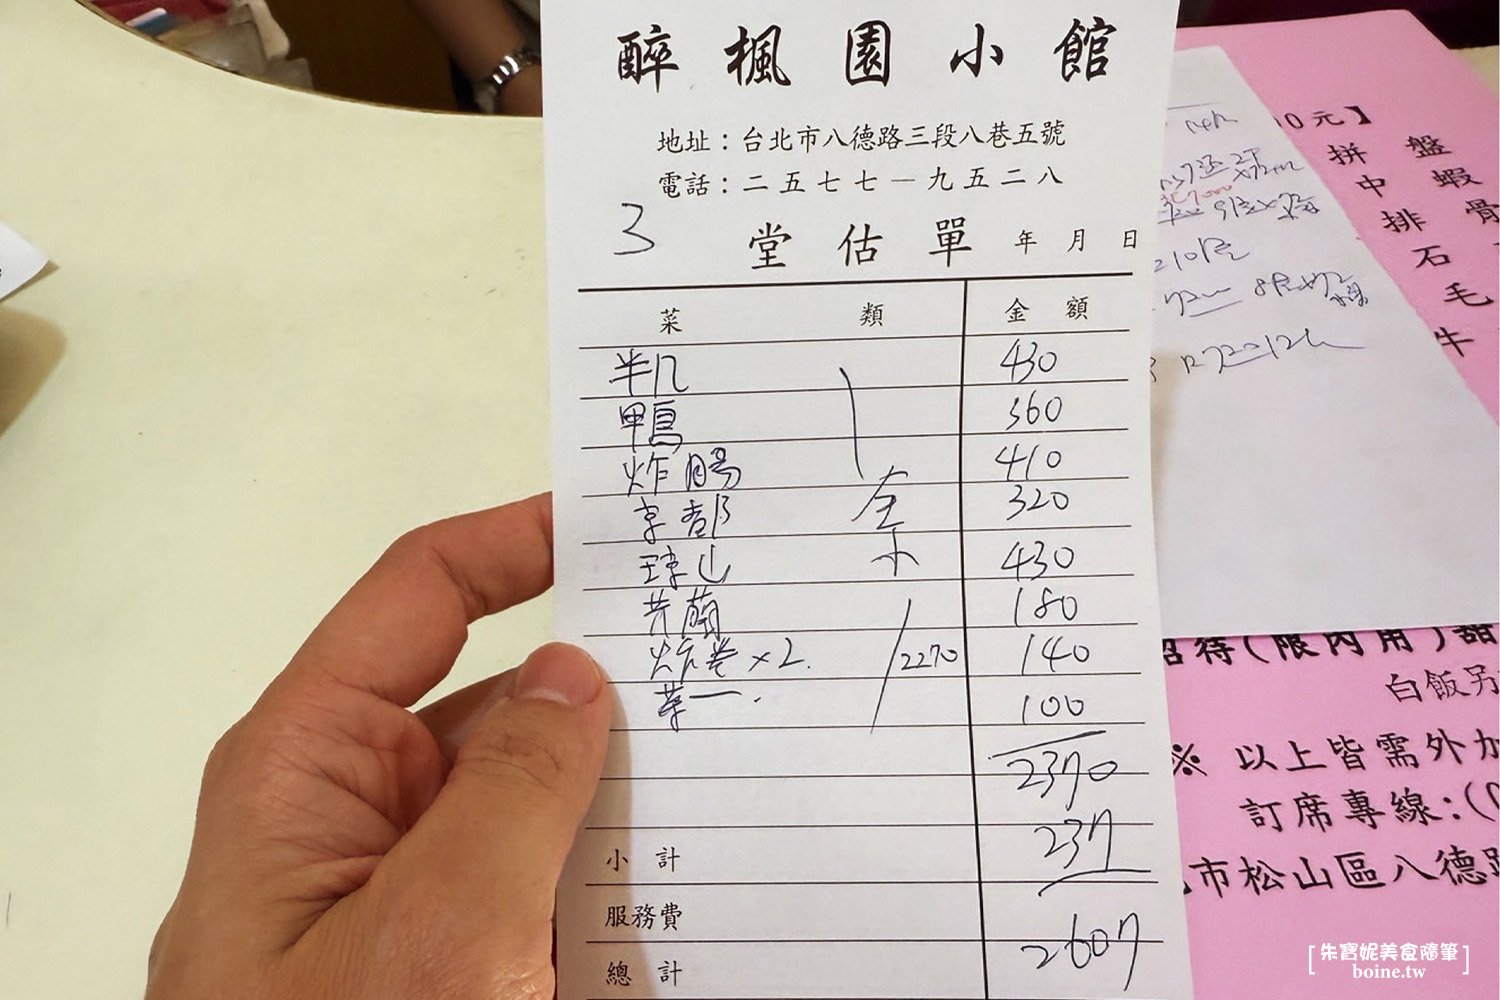 醉楓園小館
地址：台北市八德路三段八巷五號
電話：二五七七－九五二八
3
堂估單 年 月 日
菜 類 金 額
半几 430
鴨 360
炸腸 410
京都 320
430
180
炸卷x2. 2270 140
菜一. 100
2370
小 計 237
服務費
總 計 2607
0元】
拼盤
中蝦
排骨
石
毛
牛
招待(限內用)甜
白飯另
※ 以上皆需外加
訂席專線:(0
市松山區八德路
[朱寶妮美食隨筆]
boine.tw